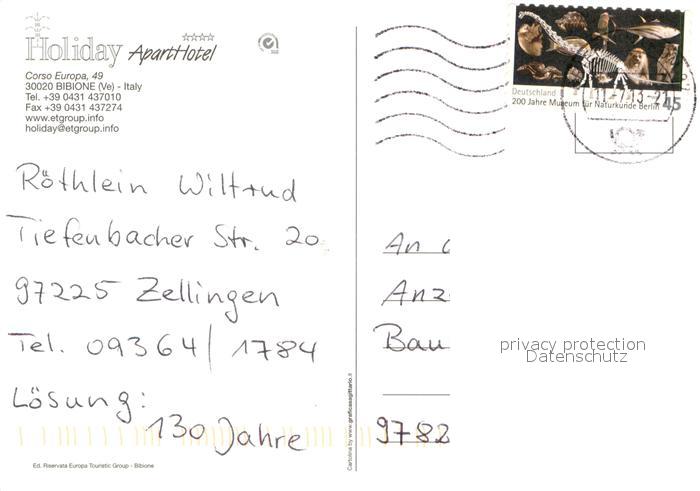 Holiday ApartHotel
Corso Europa, 49
30020 BIBIONE (Ve) - Italy
Tel. +39 0431 437010
Fax +39 0431 437274
www.etgroup.info
holiday@etgroup.info
Röthlein Wiltrud
Tiefenbacher Str. 20
97225 Zellingen
Tel. 09364/1784
Lösung:
130 Jahre
Ed. Riservata Europa Touristic Group - Bibione
Cartolina by www.graficasagittario.it
Deutschland
200 Jahre Museum für Naturkunde Berlin 45
An
Anz
Bau
privacy protection
Datenschutz
9782